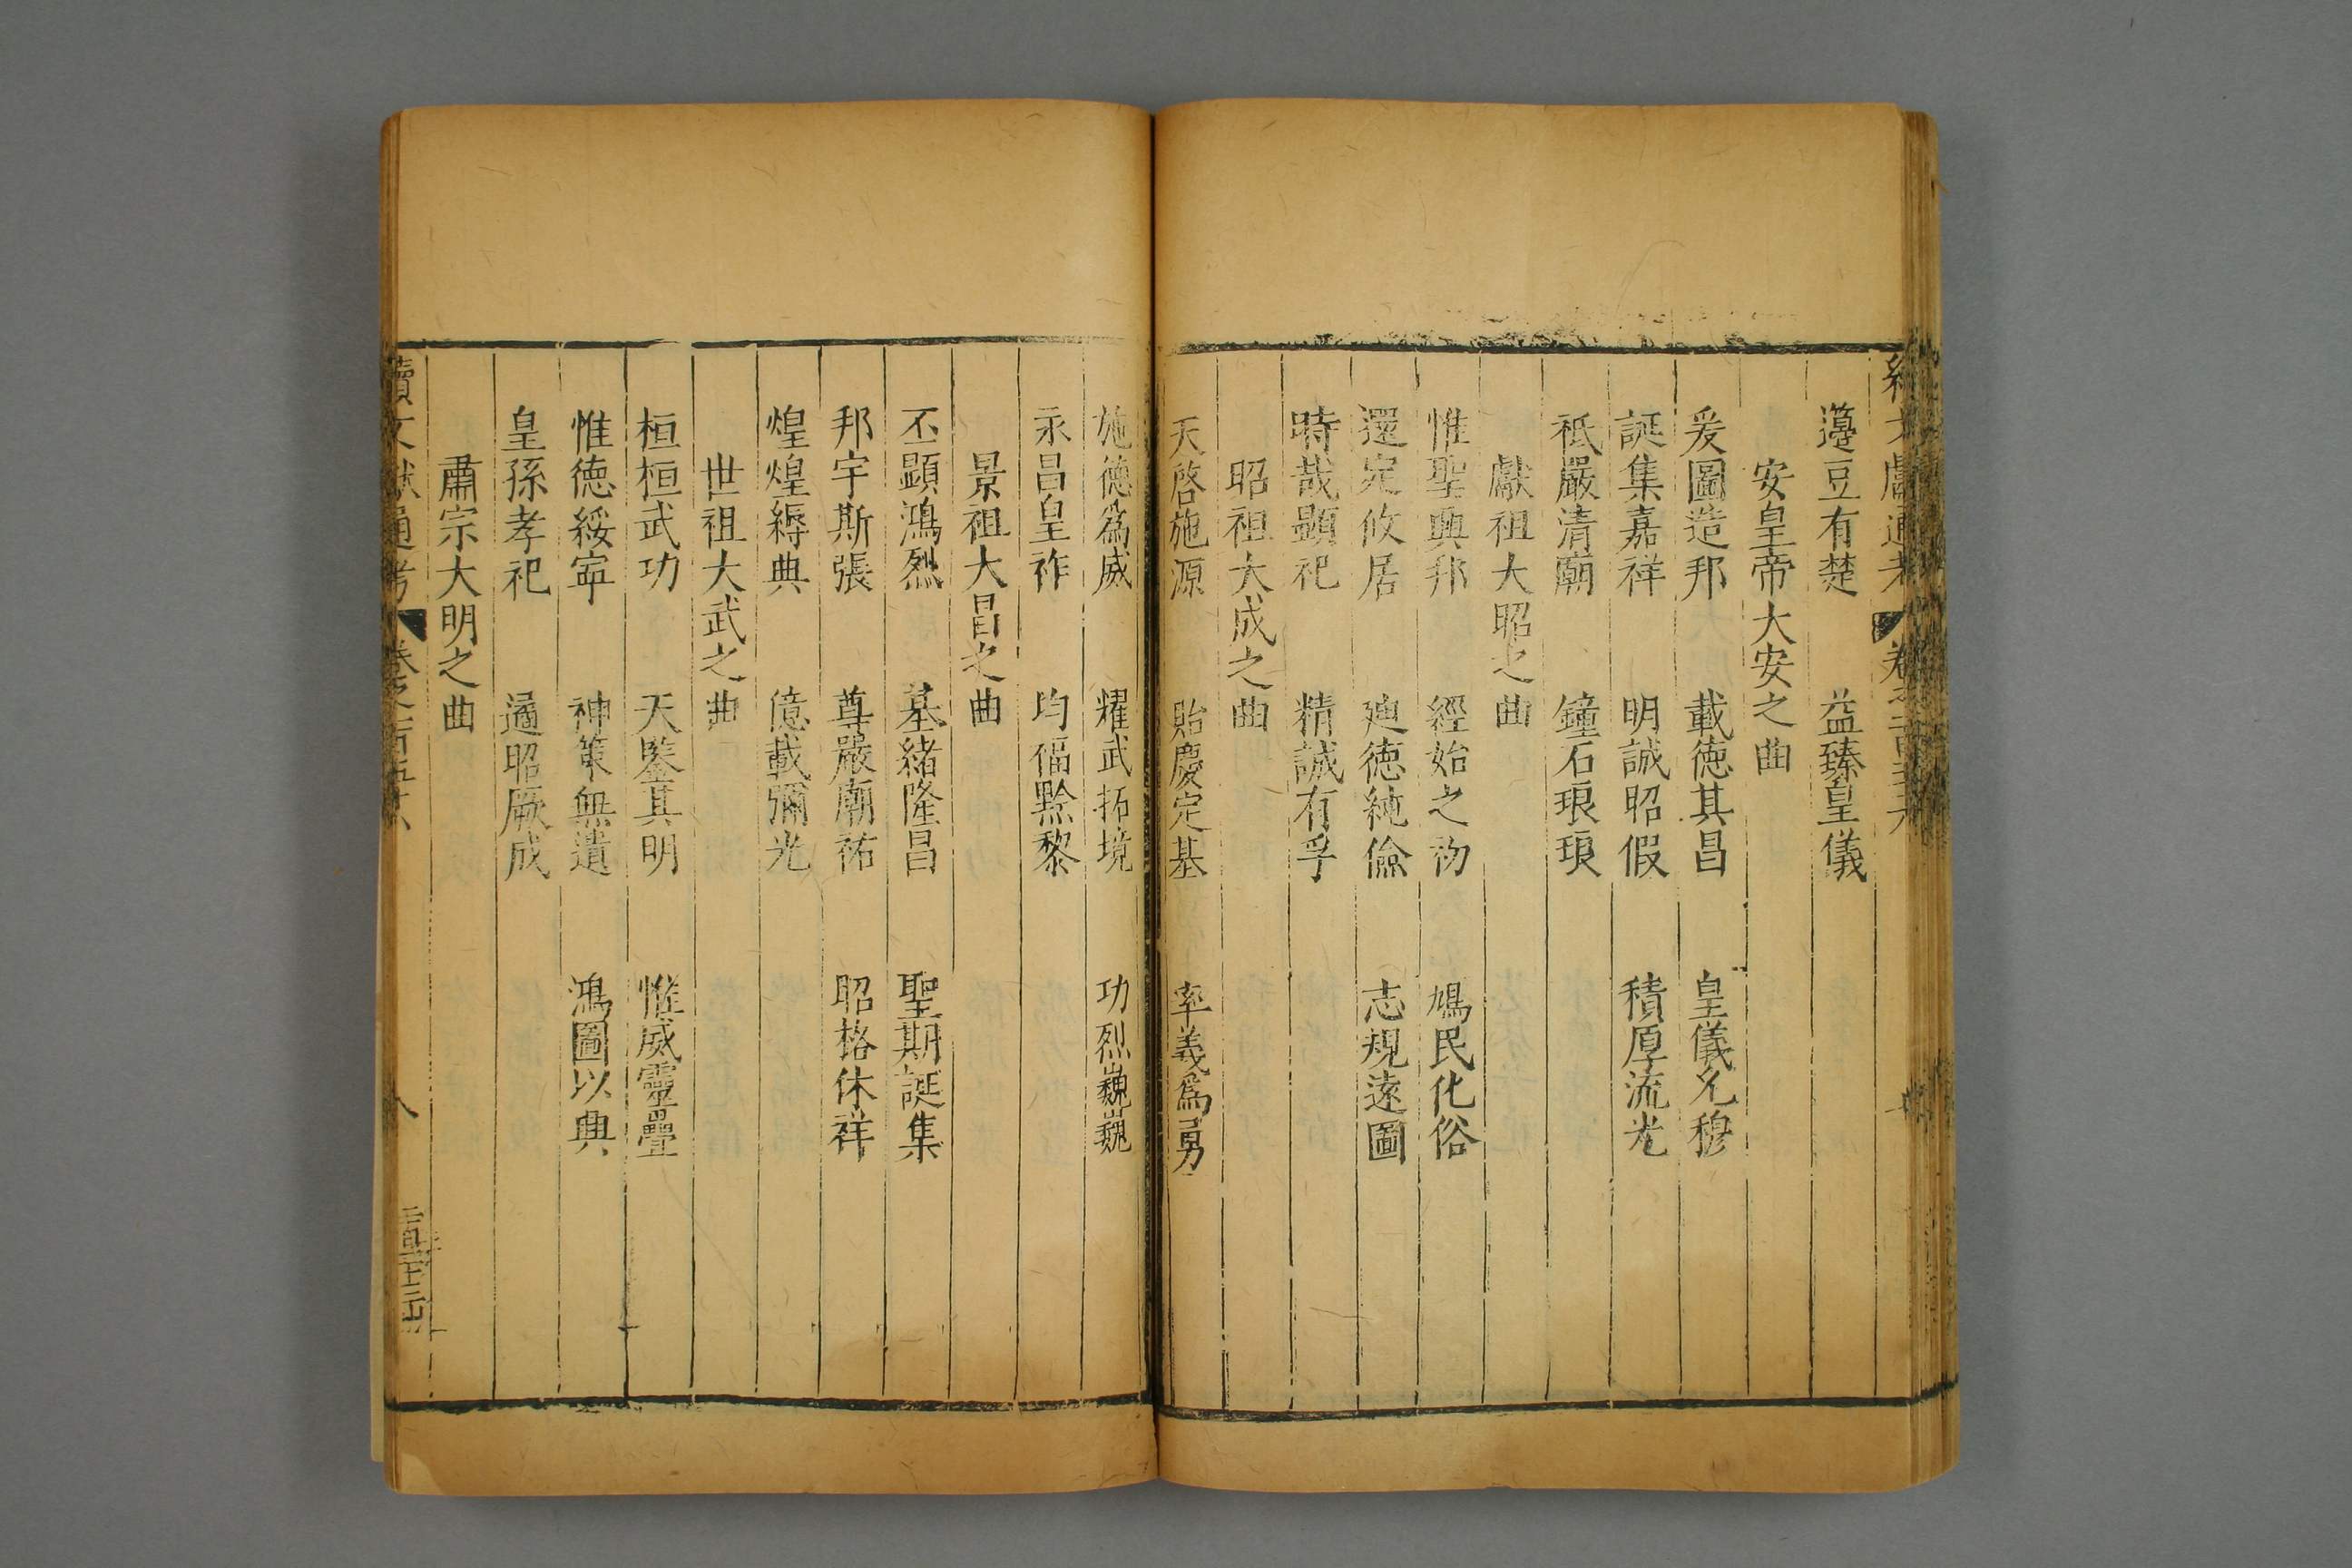 籩豆有楚 益臻皇儀
安皇帝大安之曲
爰圖造邦 載德其昌 皇儀允穆
誕集嘉祥 明誠昭假 積厚流光
祗嚴清廟 鐘石琅琅
獻祖大昭之曲
惟聖興邦 經始之初 鳩民化俗
還定攸居 廸德純儉 志規遠圖
時哉顯祀 精誠有孚
昭祖大成之曲
天啓施源 貽慶定基 率義爲勇
施德爲威 耀武拓境 功烈巍巍
永昌皇祚 均福黔黎
景祖大昌之曲
丕顯鴻烈 基緒隆昌 聖期誕集
邦宇斯張 尊嚴廟祏 昭格休祥
煌煌縟典 億載彌光
世祖大武之曲
桓桓武功 天鑒其明 惟威靈疊
惟德綏寧 神策無遺 鴻圖以興
皇孫孝祀 遹昭厥成
肅宗大明之曲
續文獻通考 卷之一百五十六 八